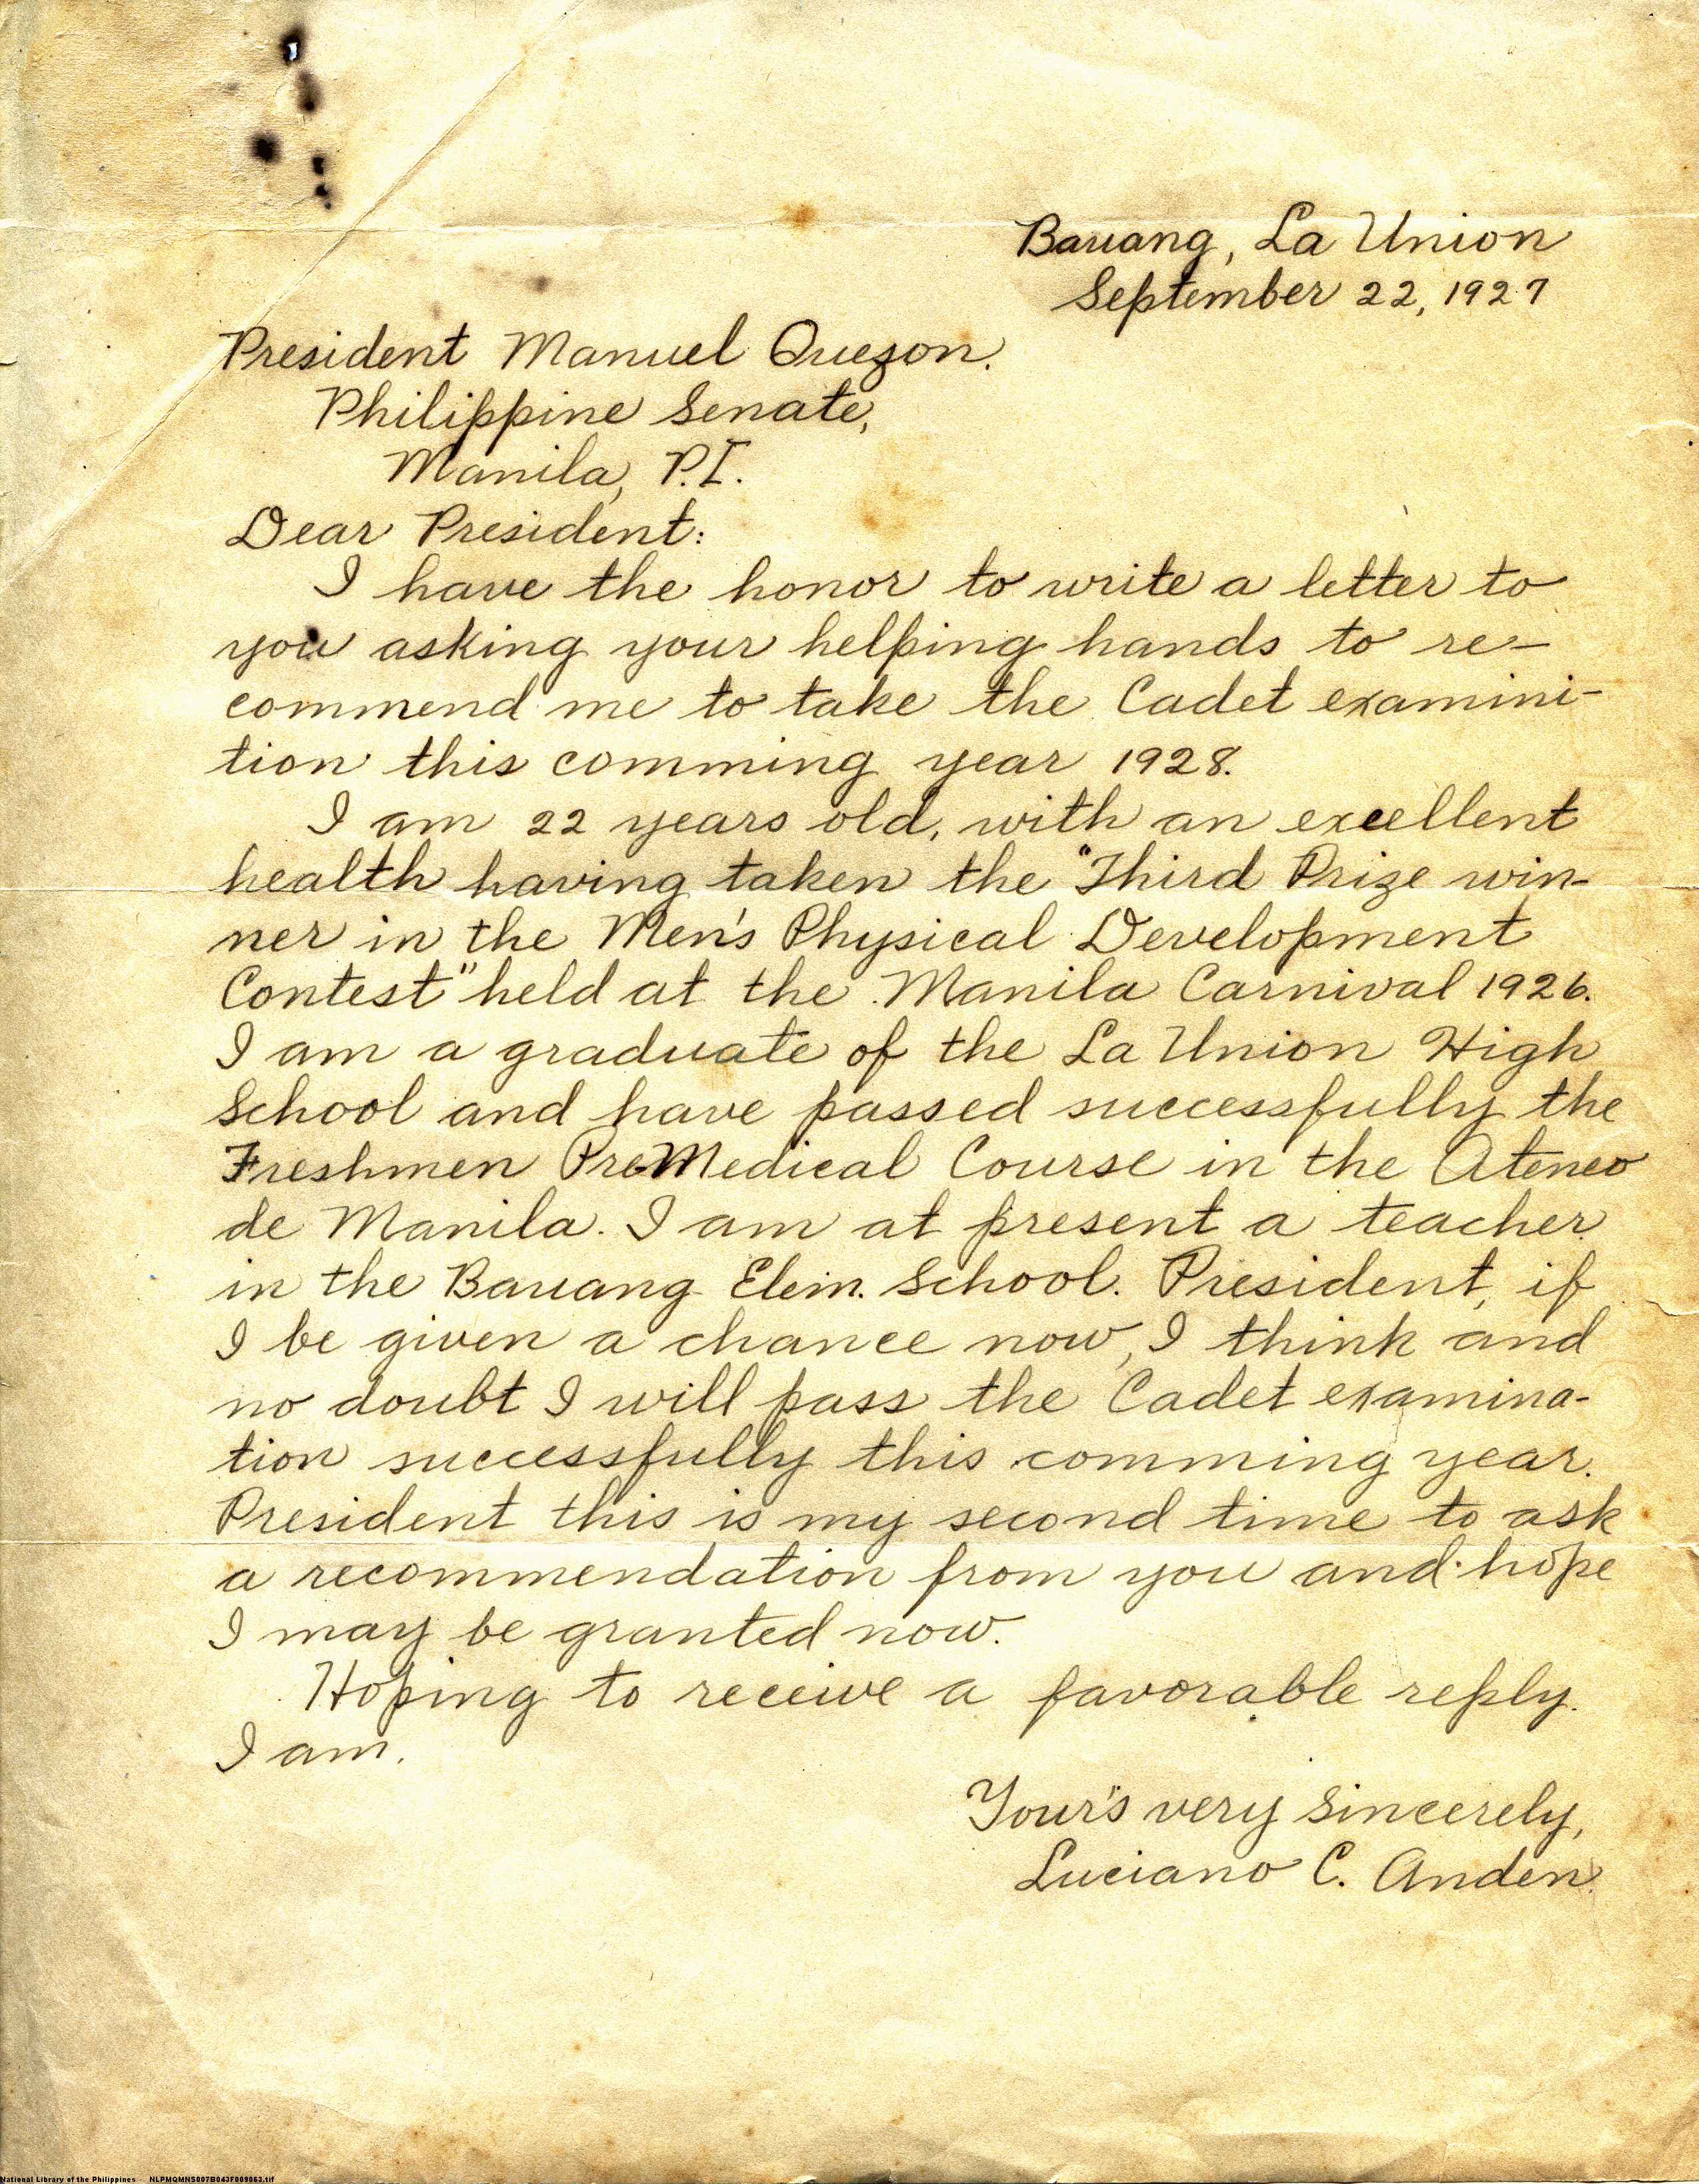 Bauang, La Union
September 22, 1927
President Manuel Quezon.
Philippine Senate,
Manila, P.I.
Dear President:
I have the honor to write a letter to
you asking your helping hands to re-
commend me to take the Cadet examini-
tion this comming year 1928.
I am 22 years old, with an excellent
health having taken the "Third Prize win-
ner in the Men's Physical Development
Contest" held at the Manila Carnival 1926.
I am a graduate of the La Union High
School and have passed successfully the
Freshmen PreMedical Course in the Ateneo
de Manila. I am at present a teacher
in the Bauang Elem. School. President, if
I be given a chance now, I think and
no doubt I will pass the Cadet examina-
tion successfully this comming year.
President this is my second time to ask
a recommendation from you and hope
I may be granted now.
Hoping to receive a favorable reply.
I am,
Your's very sincerely,
Luciano C. Anden
National Library of the Philippines NLPMQMNS007B043F009063.tif